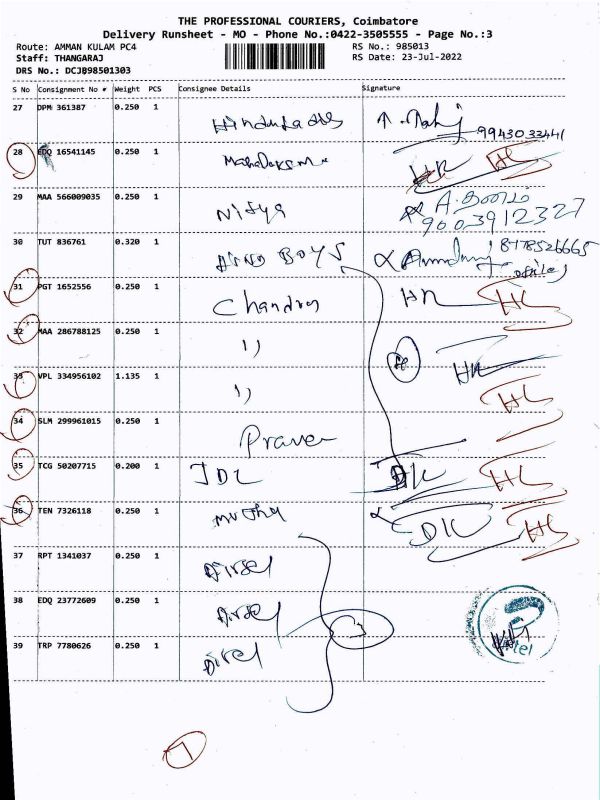 THE PROFESSIONAL COURIERS, Coimbatore
Delivery Runsheet - MO - Phone No.:0422-3505555 - Page No.:3
Route: AMMAN KULAM PC4
RS No.: 985013
Staff: THANGARAJ
RS Date: 23-Jul-2022
DRS No.: DCJB98501303
S No Consignment No # Weight PCS Consignee Details Signature
27 DPM 361387 0.250 1
9943033441
28 EDQ 16541145 0.250 1 HR HS
29 MAA 566009035 0.250 1 Nitya
9003912327
30 TUT 836761 0.320 1 BOYS 8478526665
31 PGT 1652556 0.250 1 Chandra HR HS
32 MAA 286788125 0.250 1 ))
33 VPL 334956102 1.135 1 )) HR HS
34 SLM 299961015 0.250 1 Praveen
35 TCG 50207715 0.200 1 DK HS
36 TEN 7326118 0.250 1 muthu DK HS
37 RPT 1341037 0.250 1 Airtel
38 EDQ 23772609 0.250 1 Airtel
39 TRP 7780626 0.250 1 Airtel
3
7